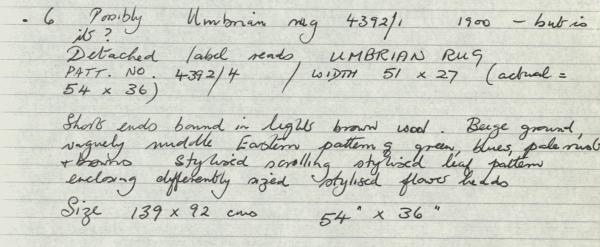 . 6 Possibly Umbrian rug 4392/1 1900 – but is
it ?
Detached label reads, UMBRIAN RUG
PATT. NO. 4392/4 / WIDTH 51 x 27 (actual =
54 x 36)
Short ends bound in light brown wool. Beige ground,
vaguely middle Eastern pattern of green, blues, pale rust
+ browns Stylised scrolling stylised leaf pattern
enclosing differently sized stylised flower heads
Size 139 x 92 cms 54" x 36"